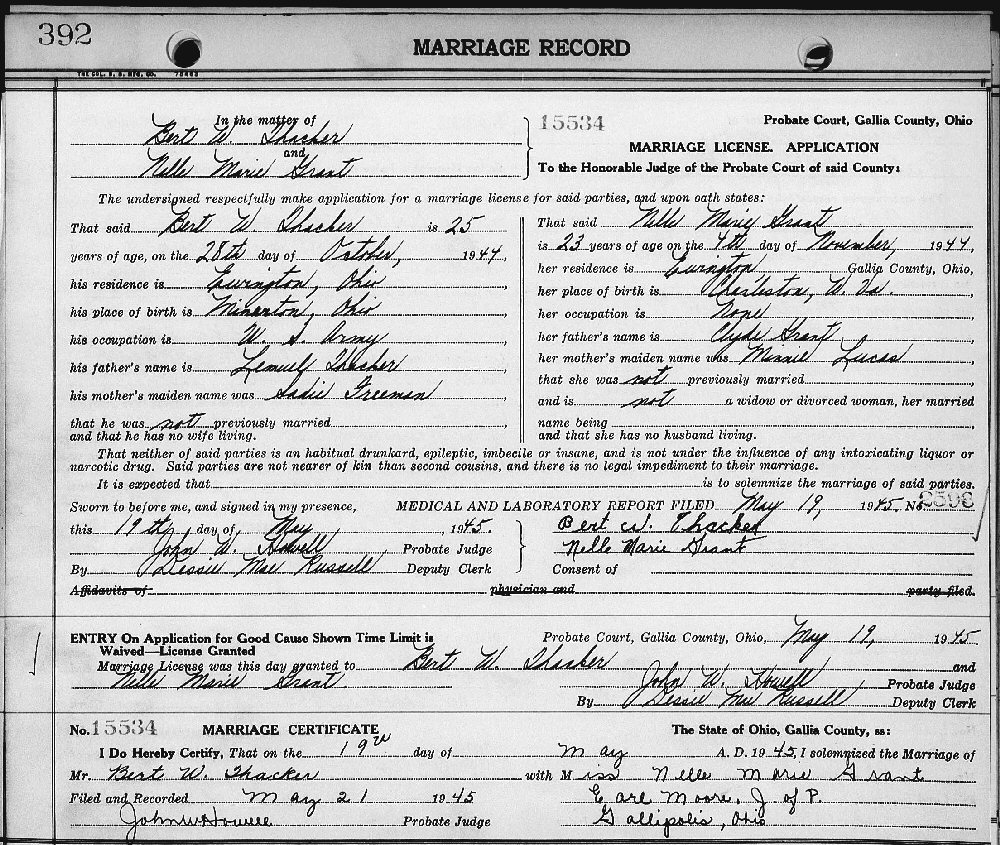 392
MARRIAGE RECORD
THE COL. B. B. MFG. CO. 72463
In the matter of
Bert W. Thacker
and
Nelle Marie Grant
15534
Probate Court, Gallia County, Ohio
MARRIAGE LICENSE. APPLICATION
To the Honorable Judge of the Probate Court of said County:
The undersigned respecifully make application for a marriage license for said parties, and upon oath states:
That said Bert W. Thacker is 25
years of age, on the 28th day of October, 1944,
his residence is Ewington, Ohio,
his place of birth is Minerton, Ohio,
his occupation is U. S. Army,
his father's name is Lemuel Thacker,
his mother's maiden name was Sadie Freeman,
that he was not previously married,
and that he has no wife living.
That said Nelle Marie Grant
is 23 years of age on the 4th day of November, 1944,
her residence is Ewington Gallia County, Ohio,
her place of birth is Charleston, W. Va.
her occupation is None
her father's name is Clyde Grant
her mother's maiden name was Minnie Lucas
that she was not previously married
and is not a widow or divorced woman, her married
name being
and that she has no husband living.
That neither of said parties is an habitual drunkard, epileptic, imbecile or insane, and is not under the influence of any intoxicating liquor or
narcotic drug. Said parties are not nearer of kin than second cousins, and there is no legal impediment to their marriage.
It is expected that is to solemnize the marriage of said parties.
Sworn to before me, and signed in my presence, MEDICAL AND LABORATORY REPORT FILED May 19, 1945, No. 2596
this 19th day of May, 1945.
John W. Howell Probate Judge
By Dessie Mae Russell Deputy Clerk
Bert W. Thacker
Nelle Marie Grant
Consent of
Affidavits of physician and party filed.
ENTRY On Application for Good Cause Shown Time Limit is
Waived—License Granted
Probate Court, Gallia County, Ohio, May 19, 1945
Marriage License was this day granted to Bert W. Thacker and
Nelle Marie Grant
John W. Howell Probate Judge
By Dessie Mae Russell Deputy Clerk
No. 15534 MARRIAGE CERTIFICATE The State of Ohio, Gallia County, ss:
I Do Hereby Certify, That on the 19th day of May A. D. 1945, I solemnized the Marriage of
Mr. Bert W. Thacker with Miss Nelle Marie Grant
Filed and Recorded May 21 1945
Earl Moore, J. of P.
John W Howell Probate Judge
Gallipolis, Ohio